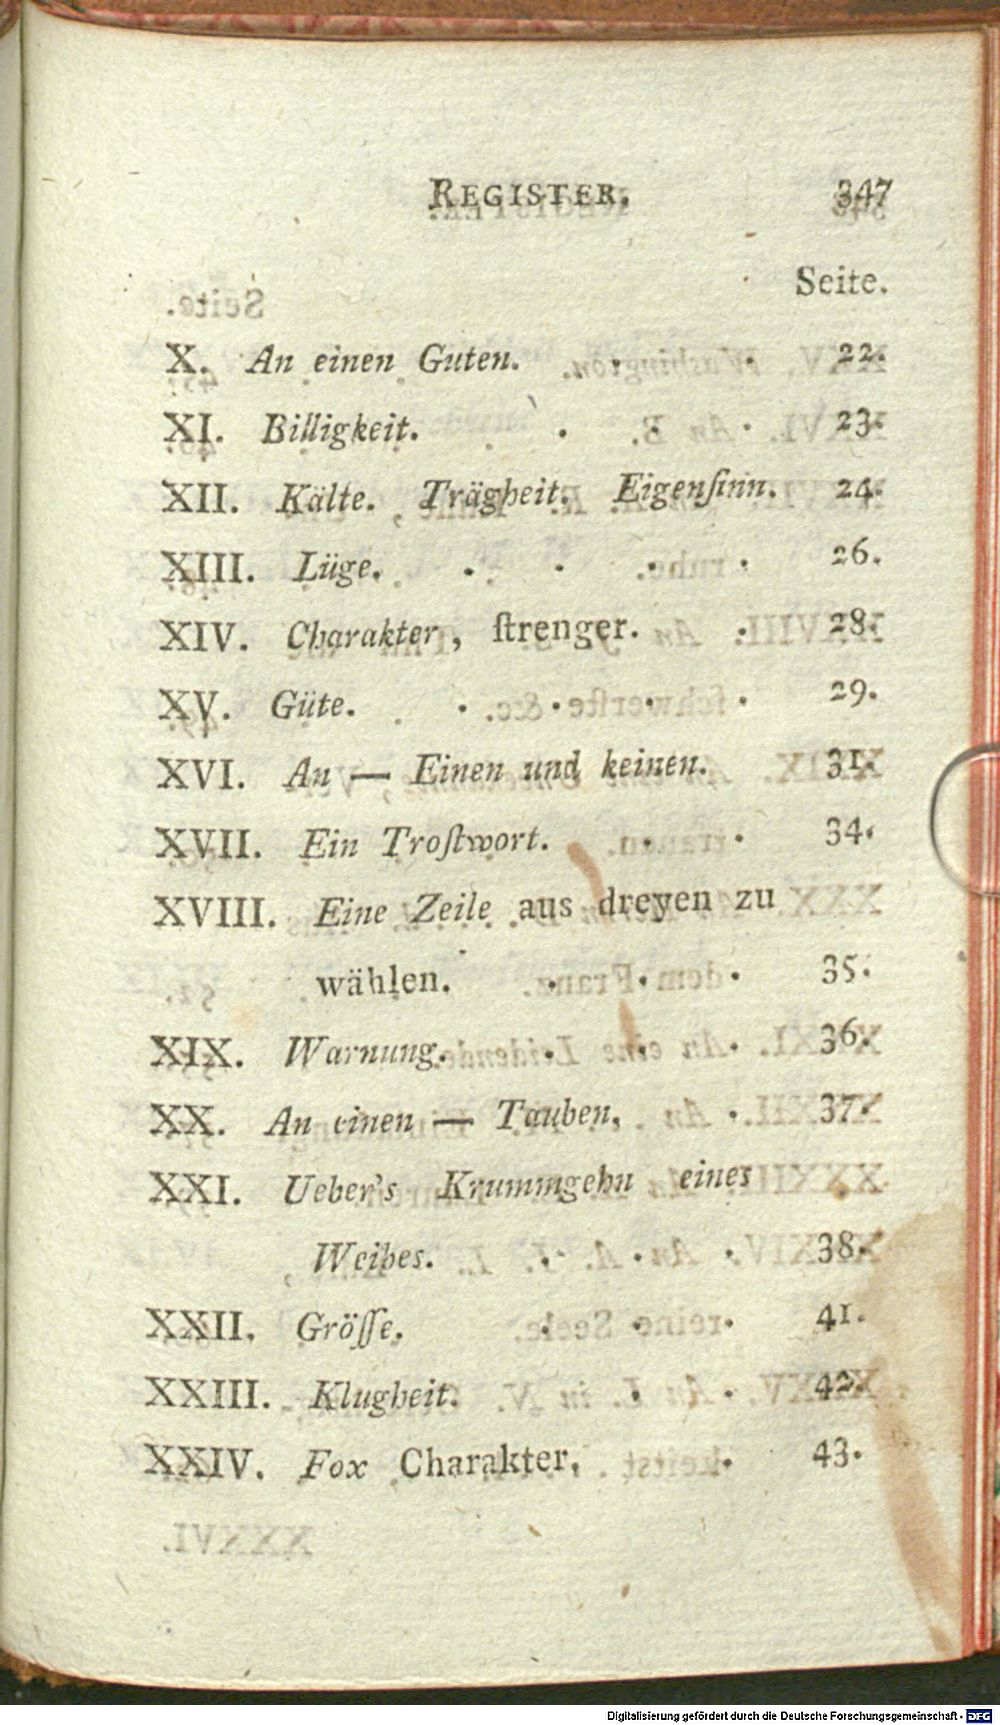 REGISTER. 347
Seite.
X. An einen Guten. . . 22.
XI. Billigkeit. . . . 23.
XII. Kälte. Trägheit. Eigenſinn. 24.
XIII. Lüge. . . . . 26.
XIV. Charakter, ſtrenger. . 28.
XV. Güte. . . . . 29.
XVI. An — Einen und keinen. 31.
XVII. Ein Troſtwort. . . 34.
XVIII. Eine Zeile aus dreyen zu
wählen. . . . 35.
XIX. Warnung. . . . 36.
XX. An einen — Tauben. . 37.
XXI. Ueber's Krummgehn eines
Weibes. . . . 38.
XXII. Gröſſe. . . . 41.
XXIII. Klugheit. . . 42.
XXIV. Fox Charakter. . 43.
Digitalisierung gefördert durch die Deutsche Forschungsgemeinschaft - DFG